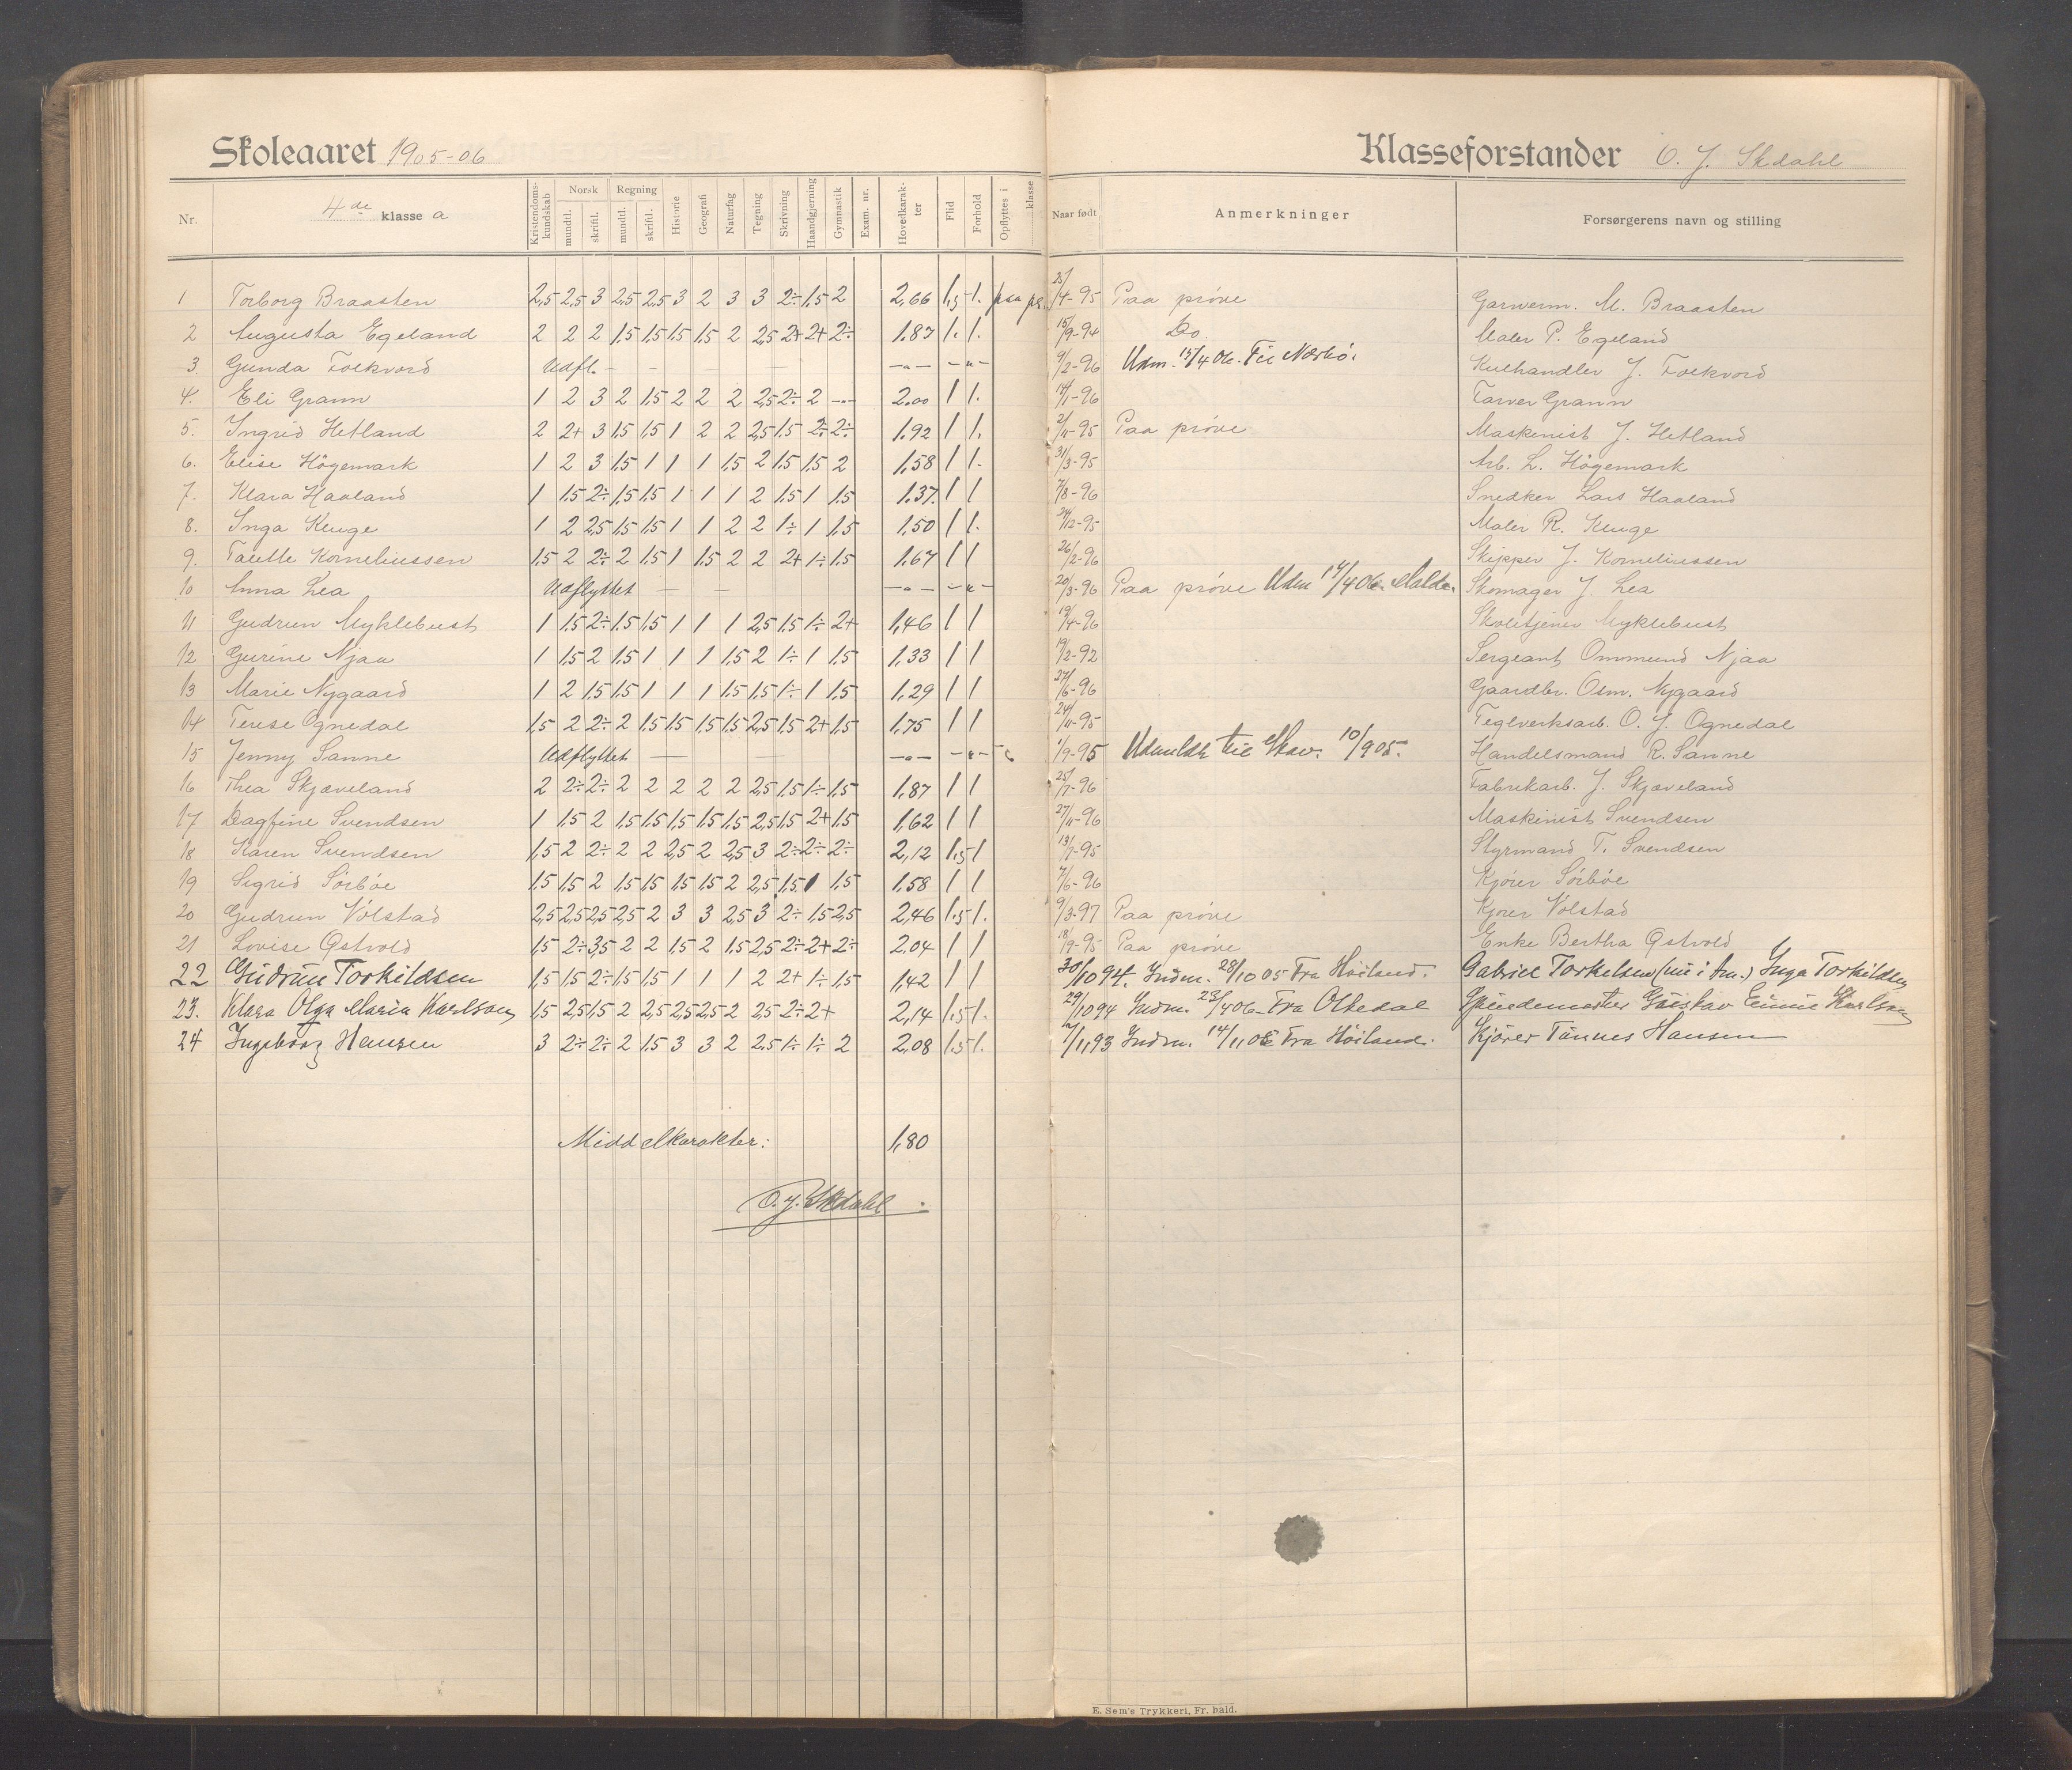 Skoleaaret 1905-06
Klasseforstander O. J. Skdahl
Nr. 4de klasse a Kristendomskundskab Norsk mundtl. skriftl. Regning mundtl. skriftl. Historie Geografi Naturfag Tegning Skrivning Haandgjerning Gymnastik Exam. nr. Hovedkarakter Flid Forhold Opflyttes i klasse Naar født Anmerkninger Forsørgerens navn og stilling
1 Torborg Braasten 2,5 2,5 3 2,5 2,5 3 2 3 3 2÷ 1,5 2 2,66 1,5 1. paa pr. 25/4-95 Paa prøve Garverm. M. Braasten
2 Augusta Egeland 2 2 2 1,5 1,5 1,5 1,5 2 2,5 2+ 2+ 2÷ 1.87 1. 1. 15/9-94 Do. Maler P. Egeland
3. Gunda Folkvord Udfl. — — — " — — " — 9/2-96 Udm. 15/4 06. Til Nærbö. Kulhandler J. Folkvord
4. Eli Grann 1 2 3 2 1,5 2 2 2 2,5 2÷ 2 — 2.00 1 1. 14/1-96 Farver Grann
5. Ingrid Hetland 2 2+ 3 1,5 1,5 1 2 2 2,5 1,5 2÷ 2÷ 1.92 1 1. 2/11-95 Paa prøve Maskinist J. Hetland
6. Elise Högemark 1 2 3 1,5 1 1 1 1,5 2 1,5 1,5 2 1,58 1 1. 31/3-95 Arb. L. Högemark
7. Klara Haaland 1 1,5 2÷ 1,5 1,5 1 1 1 2 1,5 1 1,5 1.37. 1 1 7/8-96 Snedker Lars Haaland
8. Inga Kluge 1 2 2,5 1,5 1,5 1 1 2 2 1÷ 1 1,5 1,50 1 1. 24/12-95 Maler R. Kluge
9. Talette Korneliussen 1,5 2 2÷ 2 1,5 1 1,5 2 2 2+ 1÷ 1,5 1,67 1 1 26/2-96 Skipper J. Korneliussen
10 Anna Lea Udflyttet — — — " — — " — 20/3-96 Paa prøve Udm 14/4 06. Malde. Skomager J. Lea
11 Gudrun Myklebust 1 1,5 2÷ 1,5 1,5 1 1 1 2,5 1,5 1÷ 2+ 1,46 1 1 19/4-96 Skoletjener Myklebust
12 Gurine Njaa 1 1,5 2 1,5 1 1 1 1,5 2 1÷ 1 1,5 1,33 1 1 19/2-92 Sergeant Ommund Njaa
13 Marie Nygaard 1 2 1,5 1,5 1 1 1 1,5 1,5 1÷ 1 1,5 1,29 1 1 27/6-96 Gaardbr. Osm. Nygaard
14 Terese Ognedal 1,5 2 2÷ 2 1,5 1,5 1,5 1,5 2,5 1,5 2+ 1,5 1,75 1 1 24/11-95 Teglverksarb. O. J. Ognedal
15 Jenny Sanne Udflyttet — — — " — — " — 1/9-95 Udmeldt til Skav. 10/9 05. Handelsmand R. Sanne
16 Thea Skjæveland 2 2÷ 2÷ 2 2 2 2 2 2,5 1,5 1÷ 1,5 1,87 1 1 25/7-96 Fabrikarb. J. Skjæveland
17 Dagfine Svendsen 1 1,5 2 1,5 1,5 1,5 1,5 1,5 2,5 1,5 2+ 1,5 1,62 1 1 27/11-96 Maskinist Svendsen
18 Karen Svendsen 1,5 2 2÷ 2 2 2,5 2 2,5 3 2÷ 2÷ 2÷ 2,12 1,5 1 13/7-95 Styrmand T. Svendsen
19 Sigrid Sörböe 1,5 1,5 2 1,5 1,5 1,5 1,5 2 2,5 1,5 1 1,5 1,58 1 1 7/6-96 Kjörer Sörböe
20 Gudrun Volstad 2,5 2,5 2,5 2,5 2 3 3 2,5 3 2÷ 1,5 2,5 2,46 1,5 1. 9/3-97 Paa prøve Kjörer Volstad
21 Lovise Østvold 1,5 2÷ 3,5 2 2 1,5 2 1,5 2,5 2÷ 2+ 2÷ 2,04 1 1 18/9-95 Paa prøve Enke Bertha Østvold
22 Gudrun Torkildsen 1,5 1,5 2÷ 1,5 1,5 1 1 1 2 2+ 1÷ 1,5 1,42 1 1 30/10 94. Indm. 28/10 05 Fra Höiland. Gabriel Torkelsen (nu i Am.) Inga Torkildsen
23. Klara Olga Maria Karlsson 1,5 2,5 1,5 2 2,5 2,5 2,5 2 2,5 2÷ 2+ 2,14 1,5 1. 29/10 94 Indm. 23/4 06 Fra Oltedal Spindemester Gustav Karlsson
24 Ingeborg Hansen 3 2÷ 2÷ 2 1,5 3 3 2 2,5 1÷ 1÷ 2 2,08 1,5 1. 7/11 93 Indm. 14/11 05 Fra Höiland. Kjörer Tönnes Hansen
Middelkarakter: 1,80
O. J. Skdahl.
E. Sem's Trykkeri, Fr. hald.